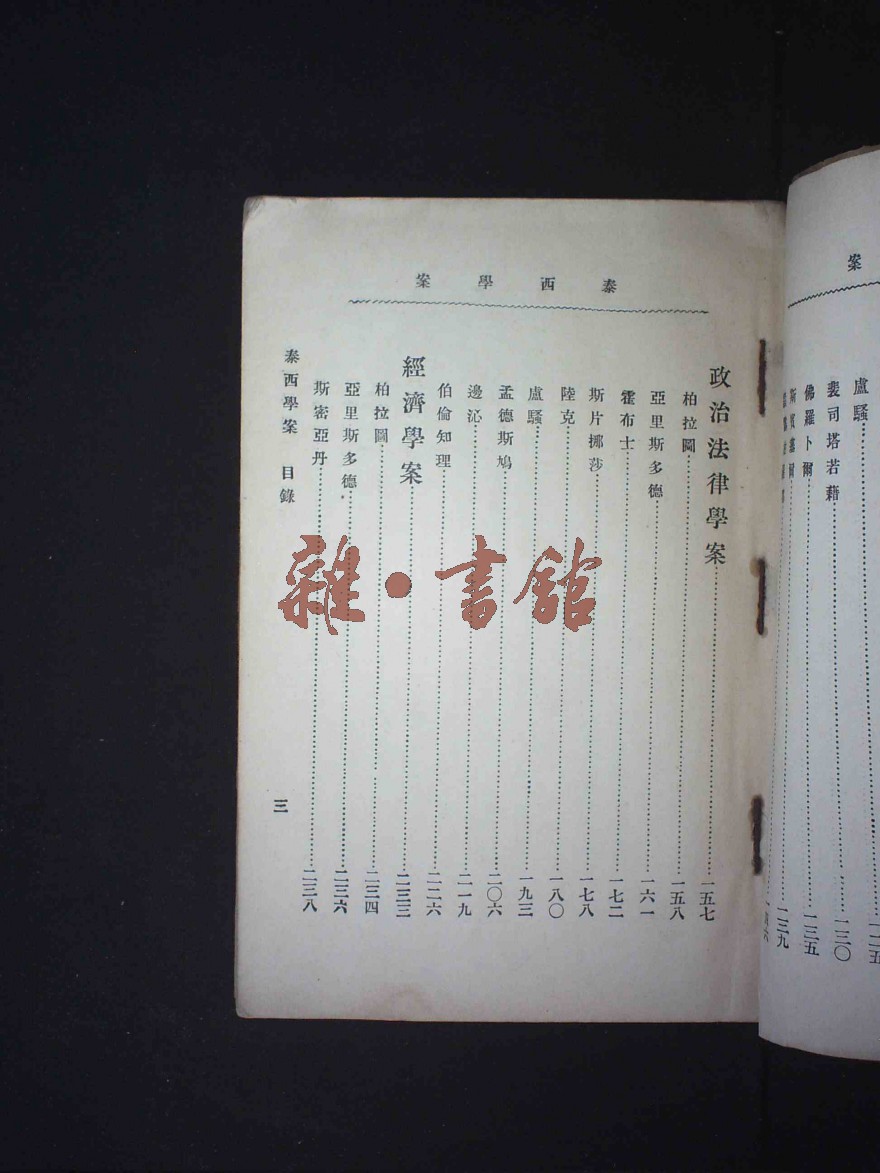 案
盧騷……一二五
裴司塔若藉……一三〇
佛羅卜爾……一三五
一三九
泰西學案
政治法律學案……一五七
柏拉圖……一五八
亞里斯多德……一六一
霍布士……一七二
斯片挪莎……一七八
陸克……一八〇
盧騷……一九三
孟德斯鳩……二〇六
邊沁……二一九
伯倫知理……二二六
經濟學案……二三三
柏拉圖……二三四
亞里斯多德……二三六
斯密亞丹……二三八
泰西學案 目錄
三
雜·書館